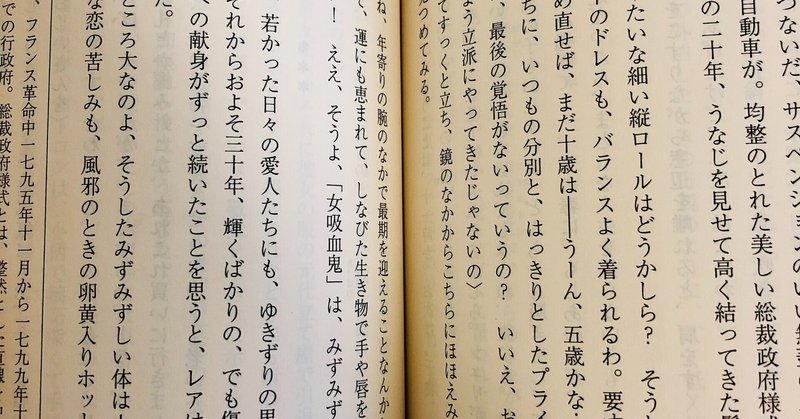 つないだ、サスペンションのいい無
自動車が。均整のとれた美しい総裁政府様
の二十年、うなじを見せて高く結ってきた
たいな細い縦ロールはどうかしら？　そう
のドレスも、バランスよく着られるわ。要
め直せば、まだ十歳は――うーん、五歳かな
ちに、いつもの分別と、はっきりとしたプライ
、最後の覚悟がないっていうの？　いいえ、お
よう立派にやってきたじゃないの〉
てすっくと立ち、鏡のなかからこちらにほほえみ
見つめてみる。
ね、年寄りの腕のなかで最期を迎えることなんか
て、運にも恵まれて、しなびた生き物で手や唇を
！　ええ、そうよ、「女吸血鬼」は、みずみず
若かった日々の愛人たちにも、ゆきずりの男
それからおよそ三十年、輝くばかりの、でも傷
への献身がずっと続いたことを思うと、レアは
た。
ところ大なのよ、そうしたみずみずしい体は
な恋の苦しみも、風邪のときの卵黄入りホッ
フランス革命中一七九五年十一月から一七九九年十
での行政府。総裁政府様式とは、整然とした直線